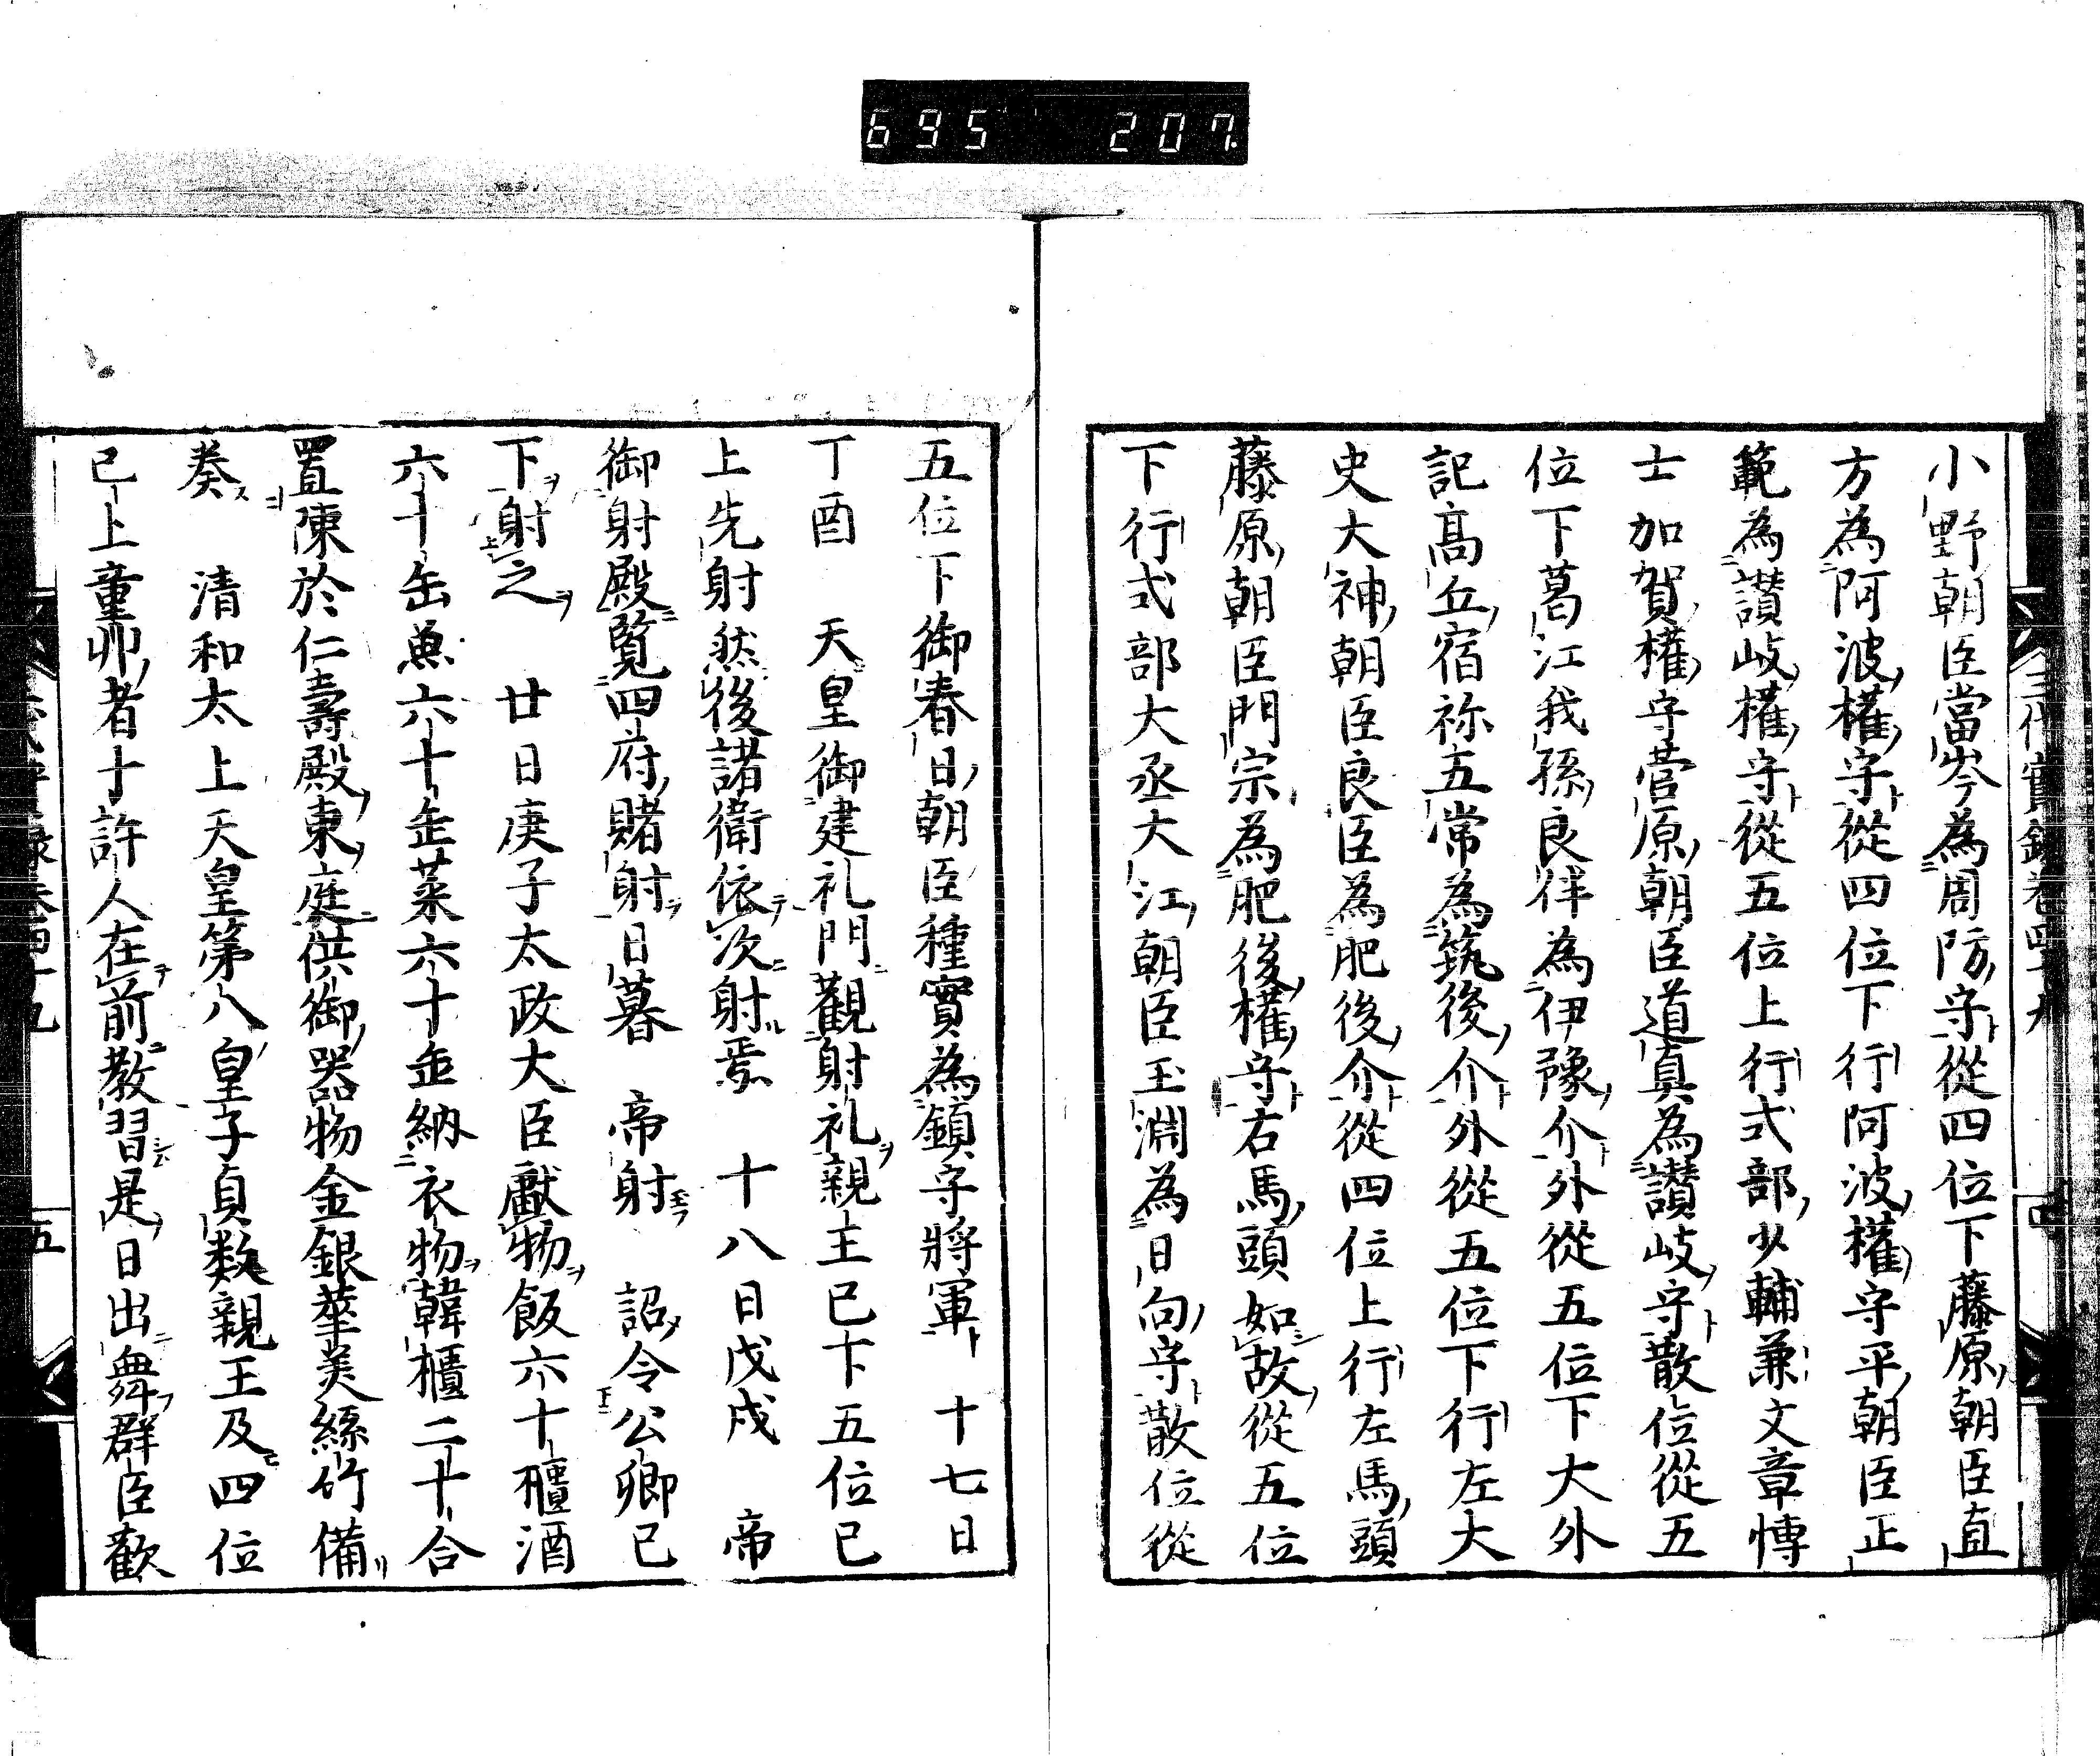 695 207
小野朝臣當岑為周防守從四位下藤原朝臣直
方為阿波權守從四位下行阿波權守平朝臣正
範為讃岐權守從五位上行式部少輔兼文章博
士加賀權守菅原朝臣道真為讃岐守散位從五
位下葛江我孫良伴為伊豫介外從五位下大外
記髙丘宿祢五常為筑後介外從五位下行左大
史大神朝臣良臣為肥後介從四位上行左馬頭
藤原朝臣門宗為肥後權守右馬頭如故從五位
下行式部大丞大江朝臣玉淵為日向守散位從
五位下御春日朝臣種實為鎮守將軍 十七日
丁酉 天皇御建礼門觀射礼親王已下五位已
上先射然後諸衛依次射焉 十八日戊戌 帝
御射殿覧四府賭射日暮 帝射 詔令公卿已
下射之 廿日庚子太政大臣獻物飯六十櫃酒
六十缶魚六十缶菜六十缶納衣物韓櫃二十合
置陳於仁壽殿東庭供御器物金銀華美絲竹備
奏 清和太上天皇第八皇子貞數親王及四位
已上童丱者十許人在前教習是日出舞群臣歡
三代實録巻四十九
五